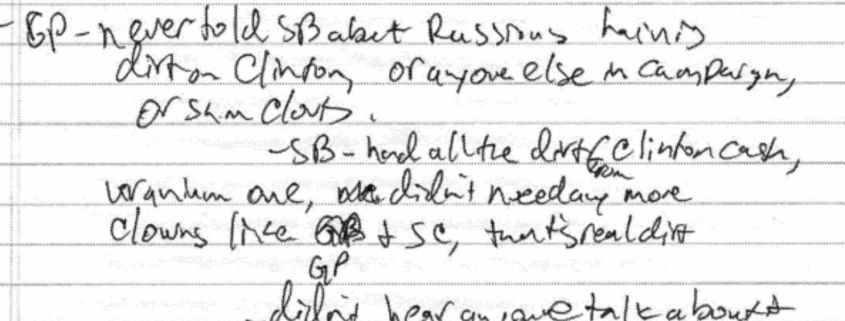 - GP - never told SB abot Russians having
dirt on Clinton, or anyone else in campaign,
or Sam Clovis.
- SB - had all the dirt from Clinton cash,
uranium one, didn't need any more
Clowns like GP + SC, that's real dirt
didn't hear anyone talk about